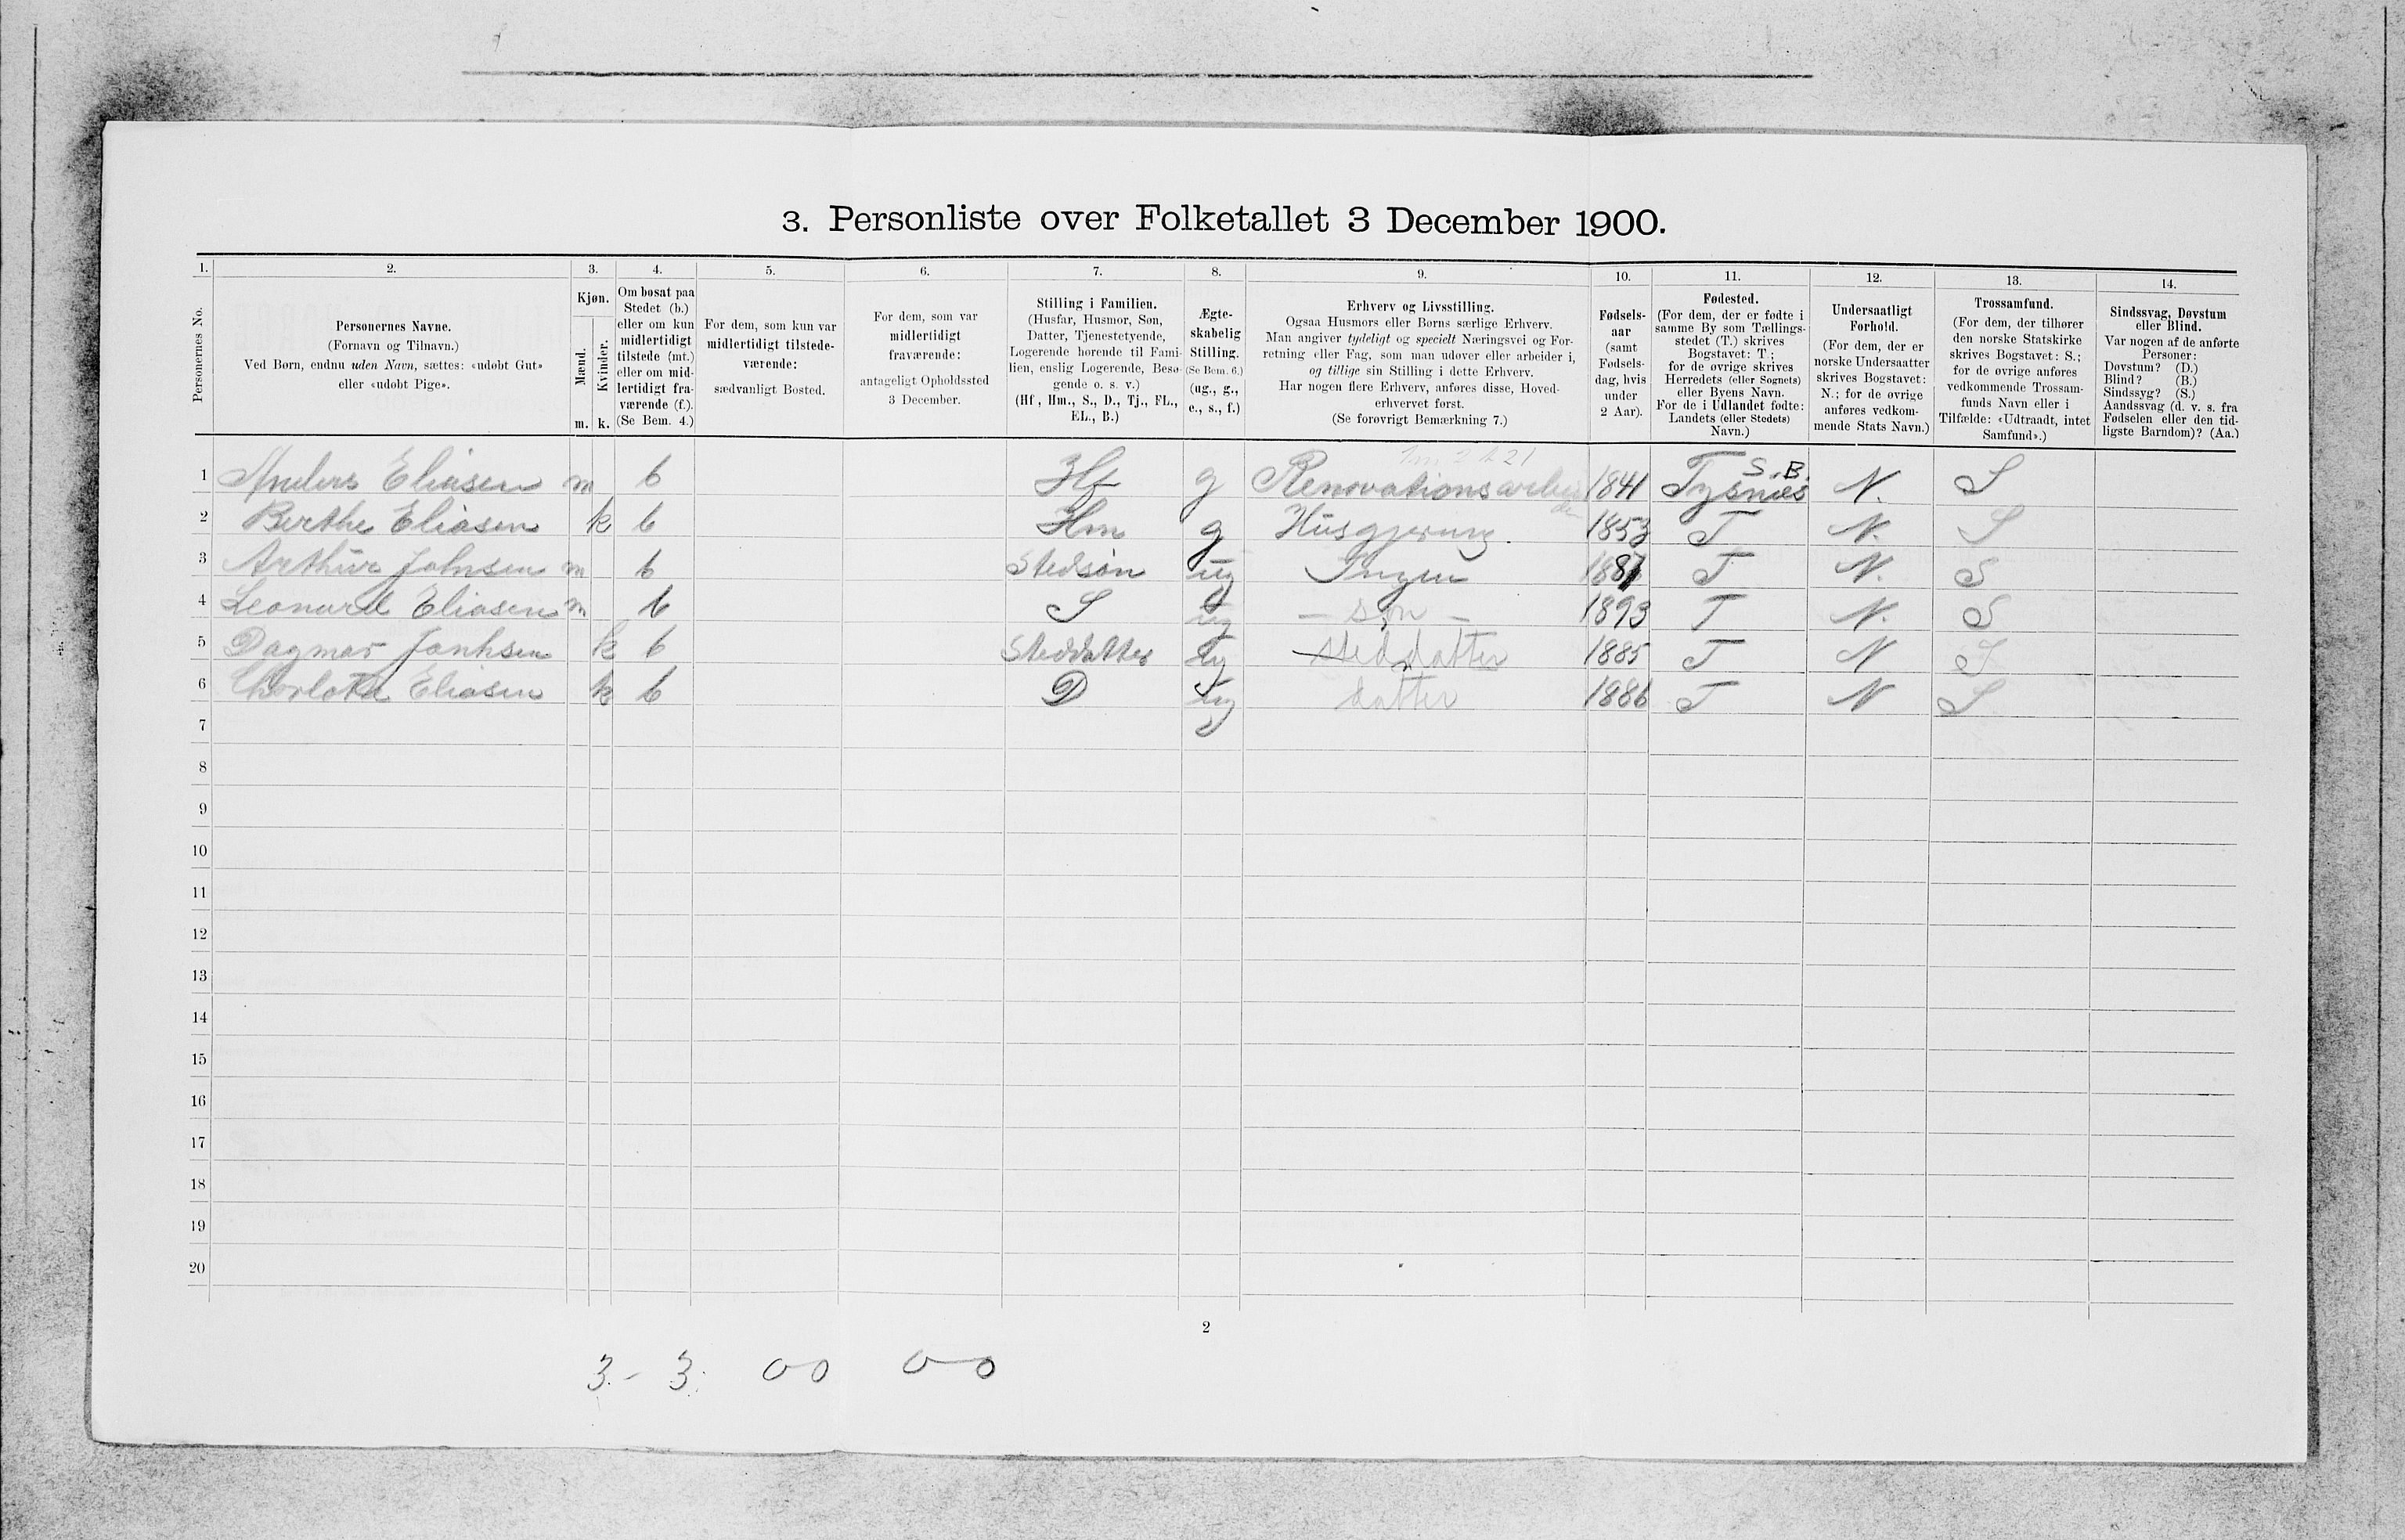 3. Personliste over Folketallet 3 December 1900.
1. 2. 3. 4. 5. 6. 7. 8. 9. 10. 11. 12. 13. 14.
Personernes No.
Personernes Navne.
(Fornavn og Tilnavn.)
Ved Børn, endnu uden Navn, sættes: «udøbt Gut»
eller «udøbt Pige».
Kjøn.
Mænd.
Kvinder.
m. k.
Om bosat paa
Stedet (b.)
eller om kun
midlertidigt
tilstede (mt.)
eller om mid-
lertidigt fra-
værende (f.).
(Se Bem. 4.)
For dem, som kun var
midlertidigt tilstede-
værende:
sædvanligt Bosted.
For dem, som var
midlertidigt
fraværende:
antageligt Opholdssted
3 December.
Stilling i Familien.
(Husfar, Husmor, Søn,
Datter, Tjenestetyende,
Logerende hørende til Fami-
lien, enslig Logerende, Besø-
gende o. s. v.)
(Hf., Hm., S., D., Tj., FL.,
EL., B.)
Ægte-
skabelig
Stilling.
(Se Bem. 6.)
(ug., g.,
e., s., f.)
Erhverv og Livsstilling.
Ogsaa Husmors eller Børns særlige Erhverv.
Man angiver tydeligt og specielt Næringsvei og For-
retning eller Fag, som man udøver eller arbeider i,
og tillige sin Stilling i dette Erhverv.
Har nogen flere Erhverv, anføres disse, Hoved-
erhvervet først.
(Se forøvrigt Bemærkning 7.)
Fødsels-
aar
(samt
Fødsels-
dag, hvis
under
2 Aar).
Fødested.
(For dem, der er fødte i
samme By som Tællings-
stedet (T.) skrives
Bogstavet: T.;
for de øvrige skrives
Herredets (eller Sognets)
eller Byens Navn.
For de i Udlandet fødte:
Landets (eller Stedets)
Navn.)
Undersaatligt
Forhold.
(For dem, der er
norske Undersaatter
skrives Bogstavet:
N.; for de øvrige
anføres vedkom-
mende Stats Navn.)
Trossamfund.
(For dem, der tilhører
den norske Statskirke
skrives Bogstavet: S.;
for de øvrige anføres
vedkommende Trossam-
funds Navn eller i
Tilfælde: «Udtraadt, intet
Samfund».)
Sindssvag, Døvstum
eller Blind.
Var nogen af de anførte
Personer:
Døvstum? (D.)
Blind? (B.)
Sindssyg? (S.)
Aandssvag (d. v. s. fra
Fødselen eller den tid-
ligste Barndom)? (Aa.)
S. B.
1 Anders Eliasen m b Hf g Renovationsarbeider 1841 Tysnæs N. S
2 Berthe Eliasen k b Hm g Husgjerning. 1853 T N. S
3 Arthur Johnsen m b Stedsøn ug Ingen 1881 T N. S
4 Leonard Eliasen m b S ug – søn – 1893 T N. S
5 Dagmar Jonhsen k b Steddatter ug steddatter 1885 T N S
6 Charlotte Eliasen k b D ug datter 1886 T N S
7
8
9
10
11
12
13
14
15
16
17
18
19
20
2
3 - 3. 0 0 0 – 0